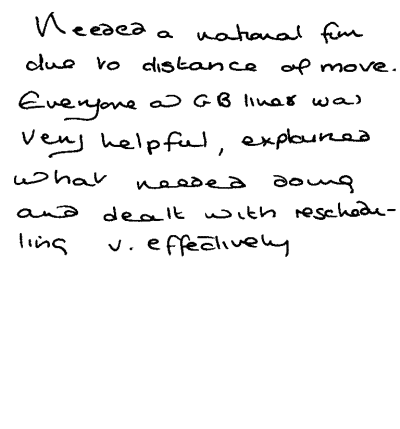 Needed a national firm
due to distance of move.
Everyone @ GB liners was
very helpful, explained
what needed doing
and dealt with reschedu-
ling v. effectively